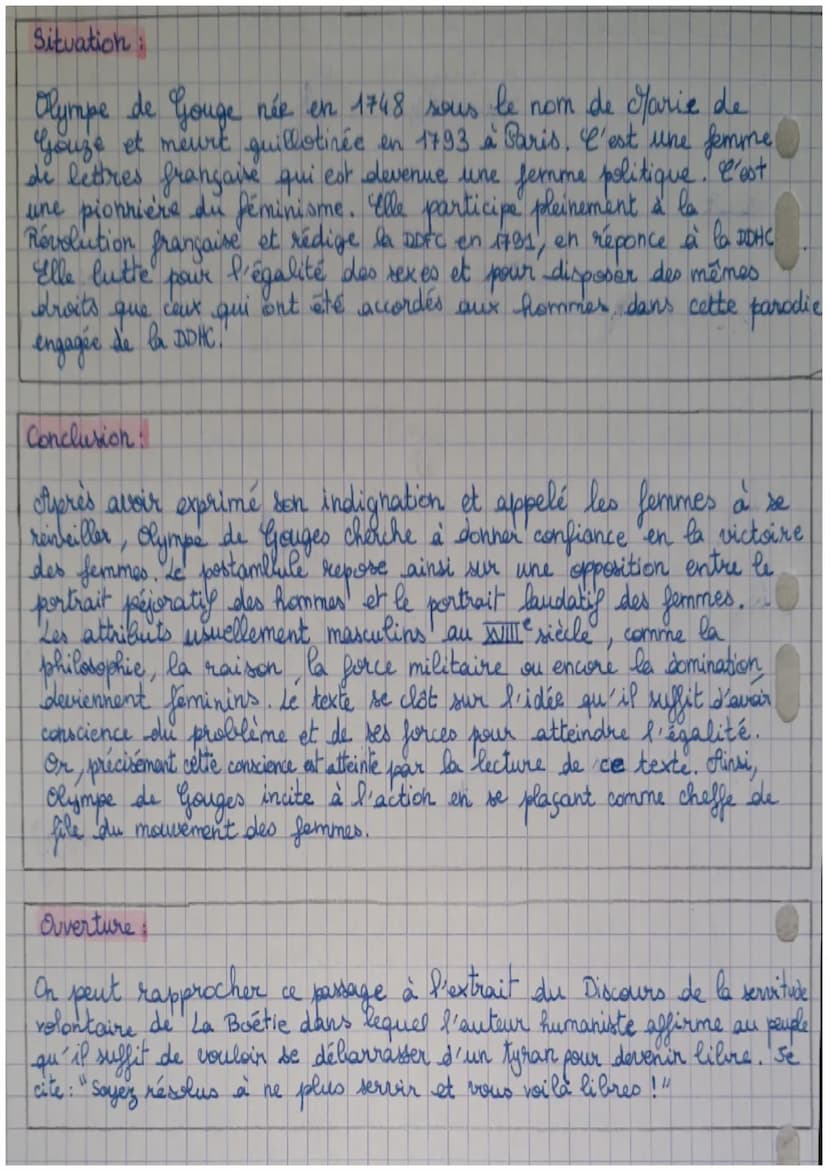 Situation :
Olympe de Gouge née en 1748 sous le nom de Marie de
Gouze et meurt guillotinée en 1793 à Paris. C'est une femme
de lettres française qui est devenue une femme politique. C'est
une pionnière du féminisme. Elle participe pleinement à la
Révolution française et rédige la DDFC en 1791, en réponce à la DDHC.
Elle lutte pour l'égalité des sexes et pour disposer des mêmes
droits que ceux qui ont été accordés aux hommes, dans cette parodie
engagée de la DDHC.
Conclusion :
Après avoir exprimé son indignation et appelé les femmes à se
réveiller, Olympe de Gouges cherche à donner confiance en la victoire
des femmes. Le postambule repose ainsi sur une opposition entre le
portrait péjoratif des hommes et le portrait laudatif des femmes.
Les attributs usuellement masculins au XVIIIe siècle, comme la
philosophie, la raison, la force militaire ou encore la domination
deviennent féminins. Le texte se clôt sur l'idée qu'il suffit d'avoir
conscience du problème et de ses forces pour atteindre l'égalité.
Or, précisément cette conscience est atteinte par la lecture de ce texte. Ainsi,
Olympe de Gouges incite à l'action en se plaçant comme cheffe de
file du mouvement des femmes.
Ouverture :
On peut rapprocher ce passage à l'extrait du Discours de la servitude
volontaire de La Boétie dans lequel l'auteur humaniste affirme au peuple
qu'il suffit de vouloir se débarrasser d'un tyran pour devenir libre. Je
cite : "Soyez résolus à ne plus servir et vous voilà libres !"